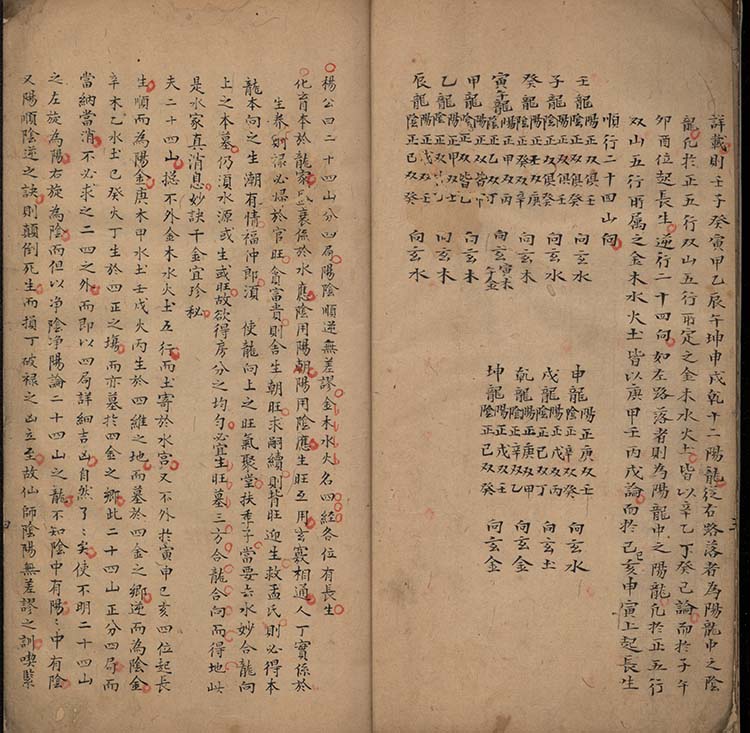 詳載則壬子癸寅甲乙辰午坤申戌乾十二陽龍從右路落者為陽龍中之陰
龍凡於正五行双山五行所定之金木水火土皆以辛乙丁癸己論而於子午
卯酉位起長生逆行二十四向如左路落者則為陽龍中之陽龍凡於正五行
双山五行所属之金木水火土皆以庚甲壬丙戊論而於己亥申寅上起長生
順行二十四山向
壬龍 陽正 双 壬 陰正 双癸 向玄水
子龍 陽正 双 壬 陰正 双癸 向玄水
癸龍 陽正壬双庚 陰正癸双辛 向玄木
寅午龍 陽正甲双丙 陰正乙双丁 向玄寅木午金
甲龍 陽正双皆甲 陰正双皆乙 向玄木
乙龍 陽正甲双壬 陰正乙双癸 向玄水
辰龍 陽正戊双壬 陰正己双癸 向玄水
申龍 陽正庚双壬 陰正辛双癸 向玄水
戌龍 陽正戊双丙 陰正己双丁 向玄土
乾龍 陽正庚双甲 陰正辛双乙 向玄金
坤龍 陽正戊双壬 陰正己双癸 向玄金
楊公四二十四山分四局陽陰順逆無差謬金木水火名四經各位有長生
化育本於龍家盛衰係於水應陰用陽朝陽用陰應生旺互用玄竅相通人丁實係於
生養財祿必歸於官旺貪富貴則舍生朝旺求嗣續則背旺迎生救孟氏則必得本
龍本向之生潮有情福仲郎須使龍向上之旺氣聚堂扶季子當要去水妙合龍向
上之本墓仍須水源或生或旺故欲得房分之均匀必宜生旺墓三方合龍合向而得地此
是水家真消息妙訣千金宜珍秘
夫二十四山揔不外金木水火土五行而土寄於水宮又不外於寅申巳亥四位起長
生順而為陽金庚木甲水土壬戊火丙生於四維之地而墓於四金之鄉逆而為陰金
辛木乙水土己癸火丁生於四正之塲而亦墓於四金之鄉此二十四山正分四局而
當納當消不必求之二四之外而即以四局詳細吉凶自然了然矣使不明二十四山
之左旋為陽右旋為陰而但以净陰净陽論二十四山之龍不知陰中有陽陽中有陰
又陽順陰逆之訣則顛倒死生而損丁破祿之凶立至故仙師陰陽無差謬之訓喫緊